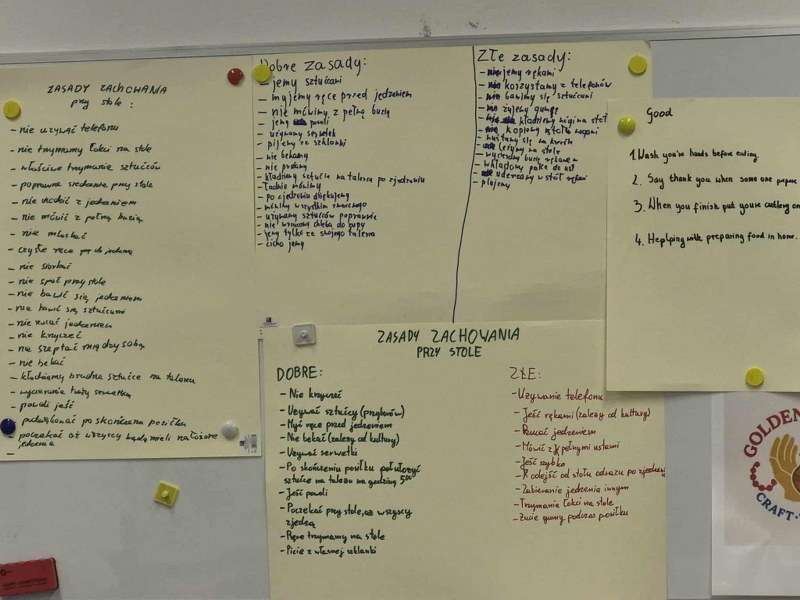 ZASADY ZACHOWANIA
przy stole:
- nie używać telefonu
- nie trzymamy łokci na stole
- właściwe trzymanie sztućców
- poprawne siedzenie przy stole
- nie chodzić z jedzeniem
- nie mówić z pełną buzią
- nie mlaskać
- czyste ręce
- nie siorbać
- nie spać przy stole
- nie bawić się jedzeniem
- nie bawić się sztućcami
- nie rzucać jedzeniem
- nie krzyczeć
- nie szeptać między sobą
- nie bekać
- kładziemy brudne sztućce na talerzu
- wycieranie twarzy serwetką
- powoli jeść
- podziękować po skończeniu posiłku
- poczekać aż wszyscy będą mieli nałożone
jedzenie
Dobre zasady:
- jemy sztućcami
- myjemy ręce przed jedzeniem
- nie mówimy z pełną buzią
- jemy powoli
- używamy serwetek
- pijemy ze szklanki
- nie bekamy
- kładziemy sztućce na talerzu po zjedzeniu
- ładnie mówimy
- po zjedzeniu dziękujemy
- mówimy wszystkim smacznego
- używamy sztućców poprawnie
- jemy tylko ze swojego talerza
- cicho jemy
Złe zasady:
- jemy rękami
- korzystamy z telefonów
- bawimy się sztućcami
- żujemy gumę
- kładziemy nogi na stół
- kopiemy
- huśtamy się na krześle
- leżymy na stole
- wycieramy buzię rękawem
- uderzamy w stół rękami
- plujemy
Good
1. Wash you're hands before eating.
2. Say thank you when some one
3. When you finish put you're cutlery on
4. Heplping with preparing food in home.
ZASADY ZACHOWANIA
PRZY STOLE
DOBRE:
- Nie krzyczeć
- Używać sztućcy (przyborów)
- Myć ręce przed jedzeniem
- Nie bekać (zależy od kultury)
- Używać serwetki
- Po skończeniu posiłku położyć
sztućce na talerzu na godzinę 5:00
- Jeść powoli
- Poczekać przy stole, aż wszyscy
zjedzą
- Ręce trzymamy na stole
- Picie z własnej szklanki
ZŁE:
- Używanie telefonu
- Jeść rękami (zależy od kultury)
- Rzucać jedzeniem
- Mówić z pełnymi ustami
- Jeść szybko
- Odejść od stołu odrazu po zjedzeniu
- Zabieranie jedzenia innym
- Trzymanie łokci na stole
- Żucie gumy podczas posiłku
GOLDEN
CRAFT